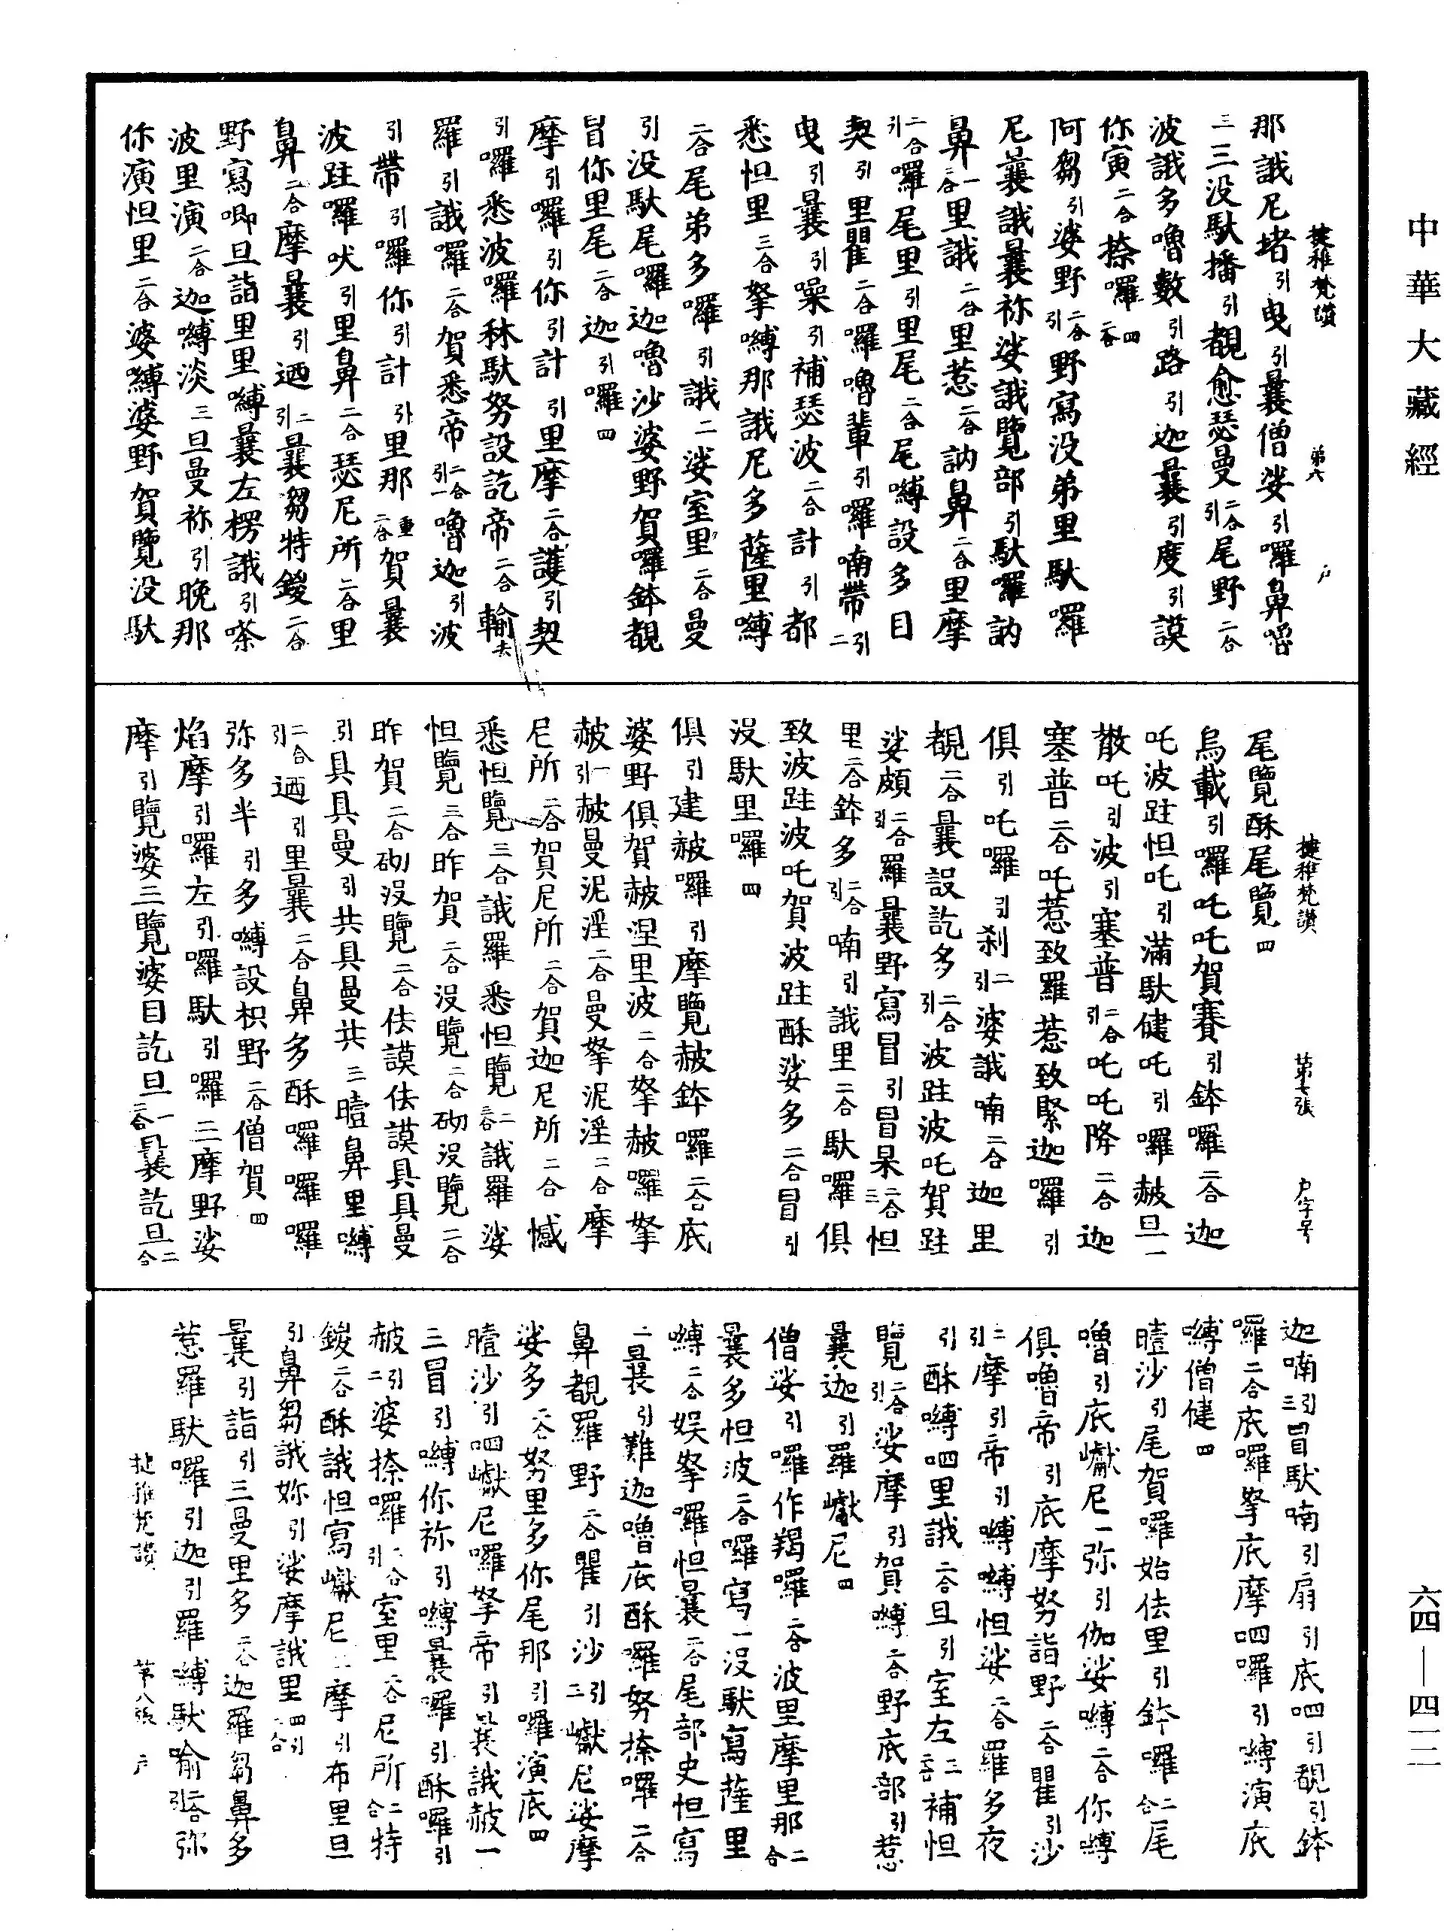 中華大藏經
揵稚梵讚 第六 户
那誐尼堵引曳引曩僧娑引囉鼻嚕
三三没馱播引覩愈瑟曼二合引尾野二合
波誐多嚕數引路引迦曩引度引謨
你寅二合捺囉二合四
阿芻引娑野二合引野寫没弟里馱囉
尼曩誐曩祢娑誐覽部引馱囉訥
鼻一二合里誐二合里惹二合訥鼻二合里摩
二合引囉尾里引里尾二合尾嚩設多目
契引里瞿二合囉嚕輩引囉喃帶引二
曳引曩引噪引補瑟波二合計引都
悉怛里三合拏嚩那誐尼多薩里嚩
二合尾弟多囉引誐二娑室里二合曼
引没馱尾囉迦嚕沙娑野賀囉鉢覩
冒你里尾二合迦引囉四
摩引囉引你引計引里摩二合護引契
引囉悉波囉秣馱努設訖帝二合輸去
羅引誐囉二合賀悉帝二合引一嚕迦引波
引帶引囉你引計引里那重二合賀曩
波跓囉吠引里鼻二合瑟尼所二合里
鼻二合摩曩引迺二引曩芻特鑁二合
野寫唧旦詣里里嚩曩左楞誐引嗏
波里演二合迦嚩淡三旦曼祢引晚那
你演怛里二合娑嚩娑野賀覽没馱
尾覽酥尾覽四
揵稚梵讚 第七張 户字号
烏載引囉吒吒賀賽引鉢囉二合迦
吒波跓怛吒引滿馱健吒引囉赦旦一
散吒引波引塞普引二合吒吒降二合迦
塞普二合吒惹致羅惹致緊迦囉引
俱引吒囉引刹二引娑誐喃二合迦里
覩二合曩設訖多二合引波跓波吒賀跓
娑頗二合引羅曩野寫冒引冒杲二合三怛
里二合鉢多二合引喃引誐里二合馱囉俱
致波跓波吒賀波跓酥娑多二合冒引
没馱里囉四
俱引建赦囉引摩覽赦鉢囉二合底
娑野俱賀赦涅里波二合拏赦囉拏
赦一引赦曼泥淫二合曼拏泥淫二合摩
尼所二合賀尼所二合賀迦尼所二合憾
悉怛覽三合誐羅悉怛覽二三合誐羅娑
怛覽三合昨賀二合没覽二合砌没覽二合
昨賀二合砌没覽二合佉謨佉謨具具曼
引具具曼引共具曼共三曀鼻里嚩
二合引迺引里曩二合鼻多酥囉囉囉
弥多半引多嚩設枳野二合僧賀四
焰摩引囉左引囉馱引囉三摩野娑
摩引覽婆三覽婆目訖旦一三合曩訖旦二合
迦喃引三冒馱喃引扇引底四引覩引鉢
囉二合底囉拏底摩四囉引嚩演底
嚩僧健四
曀沙引尾賀囉始佉里引鉢囉二合尾
嚕引底巘尼一弥引伽娑嚩二合你嚩
俱嚕帝引底摩努詣野二合瞿引沙
二引摩引帝引嚩嚩怛娑二合羅多夜
引酥嚩四里誐二合旦引室左二三合補怛
覽二合引娑摩引賀嚩二合野底部引惹
曩迦引羅巘尼四
僧娑引囉作羯羅二合波里摩里那二合
曩多怛波二合囉寫一没馱寫薩里
嚩二合娱拏囉怛曩二合尾部史怛寫
二曩引難迦嚕底酥羅努捺囉二合
鼻覩羅野二合瞿引沙引三巘尼娑摩
娑多二合努里多你尾那引囉演底四
曀沙引四巘尼囉拏帝引曩誐赦一
三冒引嚩你祢引嚩曩囉引酥囉引
赦引二婆捺囉引二合室里二合尼所二合特
鑁二合酥誐怛寫巘尼二摩引布里旦
引鼻芻誐妳引娑摩誐里四引二合
曩引詣引三曼里多二合迦羅芻鼻多
惹羅馱囉引迦引羅嚩馱喻引二合弥
揵稚梵讚 第八張 户
六四—四一二